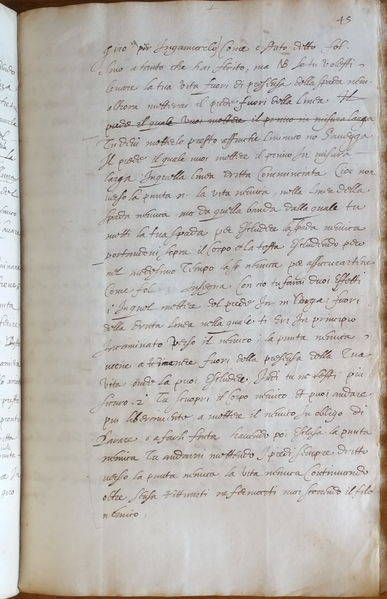 45
tiro per Ingannarlo, Come è stato detto fol.
sino a tanto che hai ferito, ma se tu volessi
levare la tua vita fuori di presensa della spada nem.
allora metterai il piede fuori della linea Il
piede il quale vuoi mettere il primo in misura larga
Tu devi metterlo presto affinche l'inimico no s'avvegga
Il piede il quale vuoi mettere il primo In misura
larga Inquella linea dritta Cominciata Cioe non
verso la punta ò la vita nemica, nella linea della
spada nemica ma da quella banda dalla quale tu
metti la tua spada per escludere la spada nemica
portandoti sopra il Corpo e la testa escludendo pero
nel medesimo Tempo la nemica per assicurartine
Come fol. Insegna Con no tu farai duoi effetti
In quel mettere del piede In larga fuori
della dritta linea nella quale ti eri In principio
Incaminato verso il nemico; la punta nemica
viene a rimanere fuori della presensa della Tua
vita onde la puoi escludere, Indi tu ne resti piu
sicuro. 2 Tu scuopri il corpo nemico et puoi andare
piu liberamente a mettere il nemico in obligo di
Parare, o a farli finta havendo poi esclusa la punta
nemica Tu andarai mettendo i piedi sempre dritto
verso la punta nemica la vita nemica Continuando
oltre senza ne fermarti mai il filo
nemico.